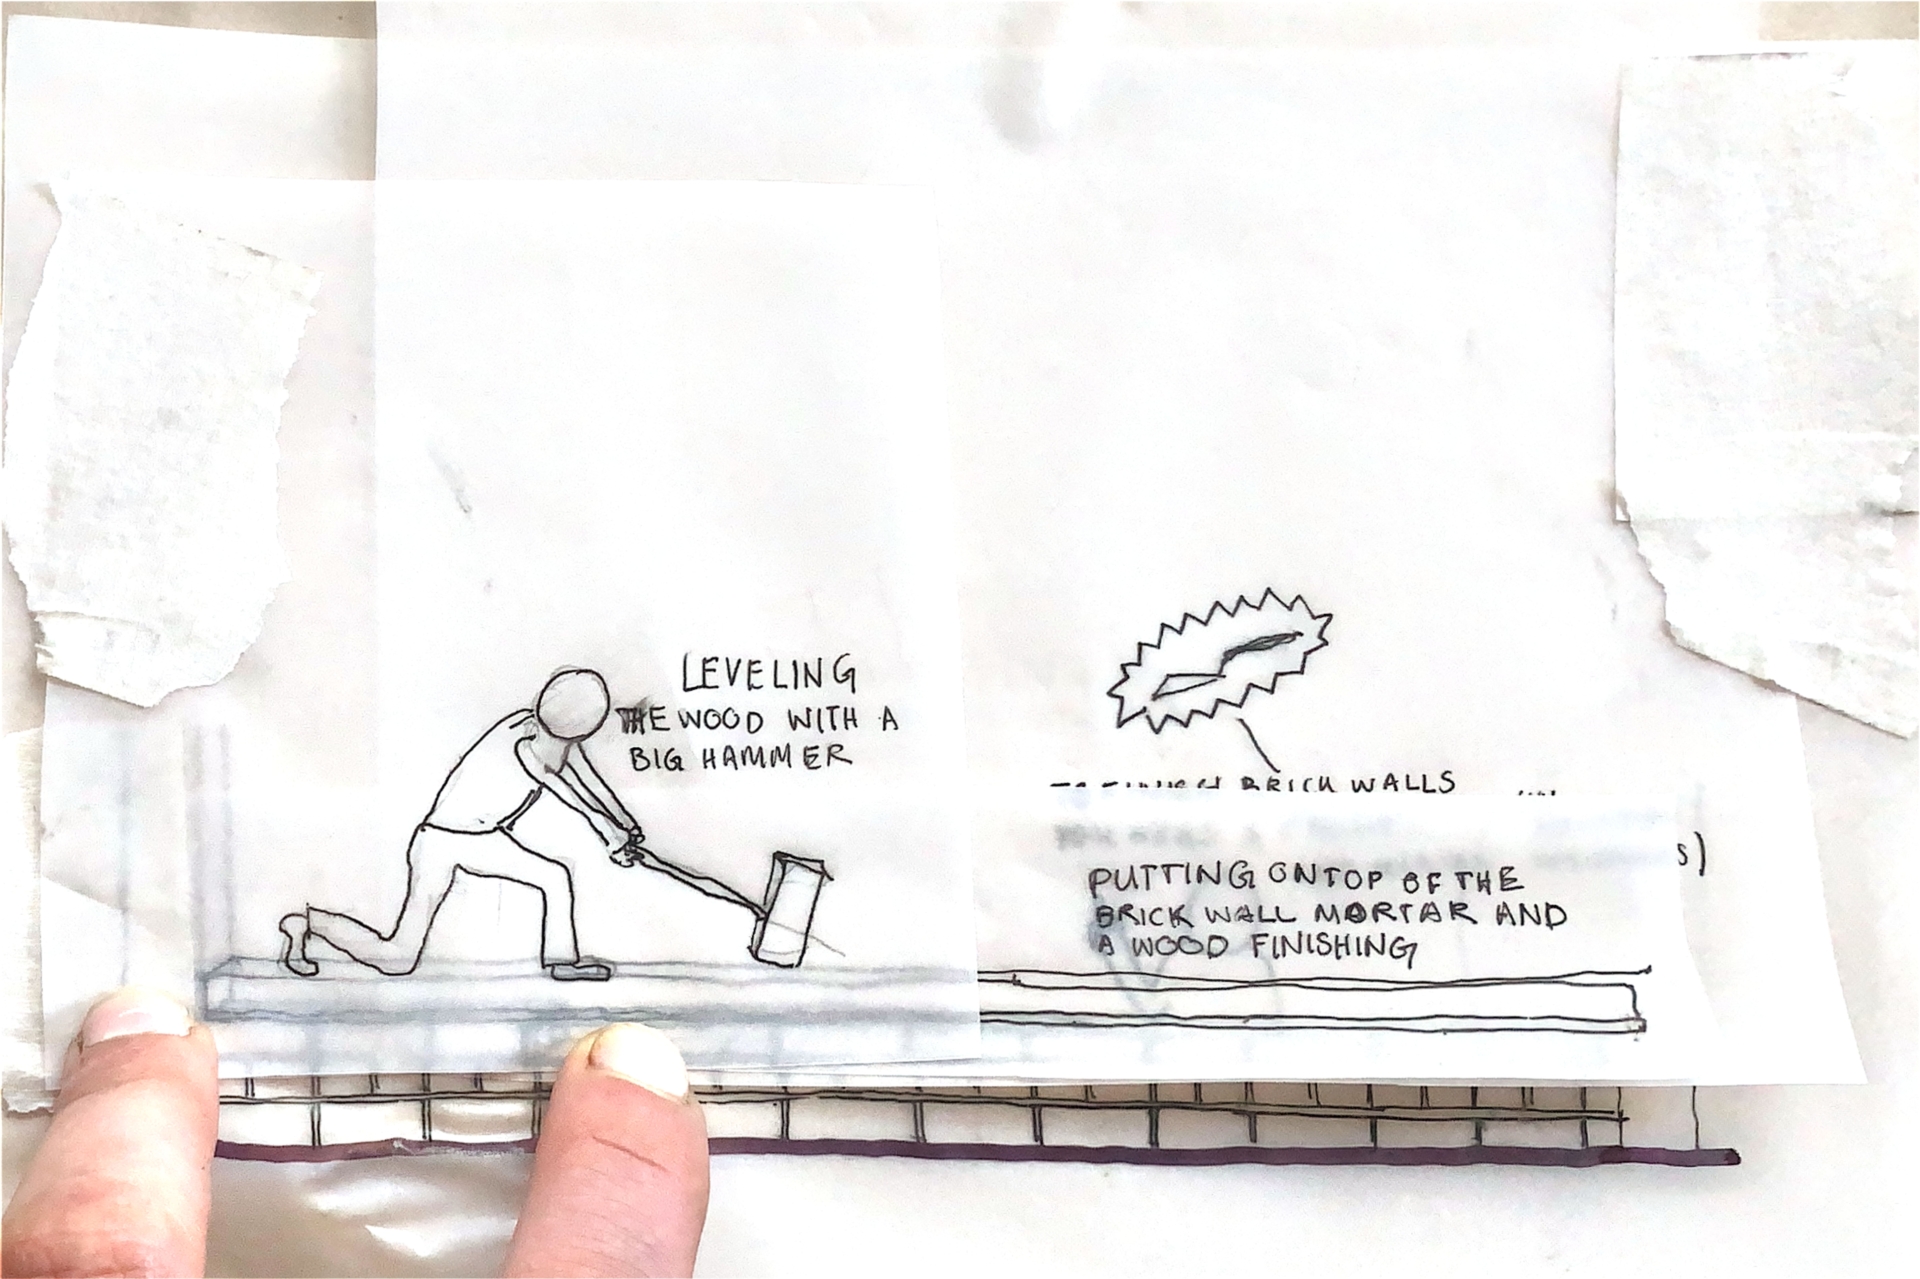 LEVELING
THE WOOD WITH A
BIG HAMMER
BRICK WALLS
s)
PUTTING ONTOP OF THE
BRICK WALL MORTAR AND
A WOOD FINISHING